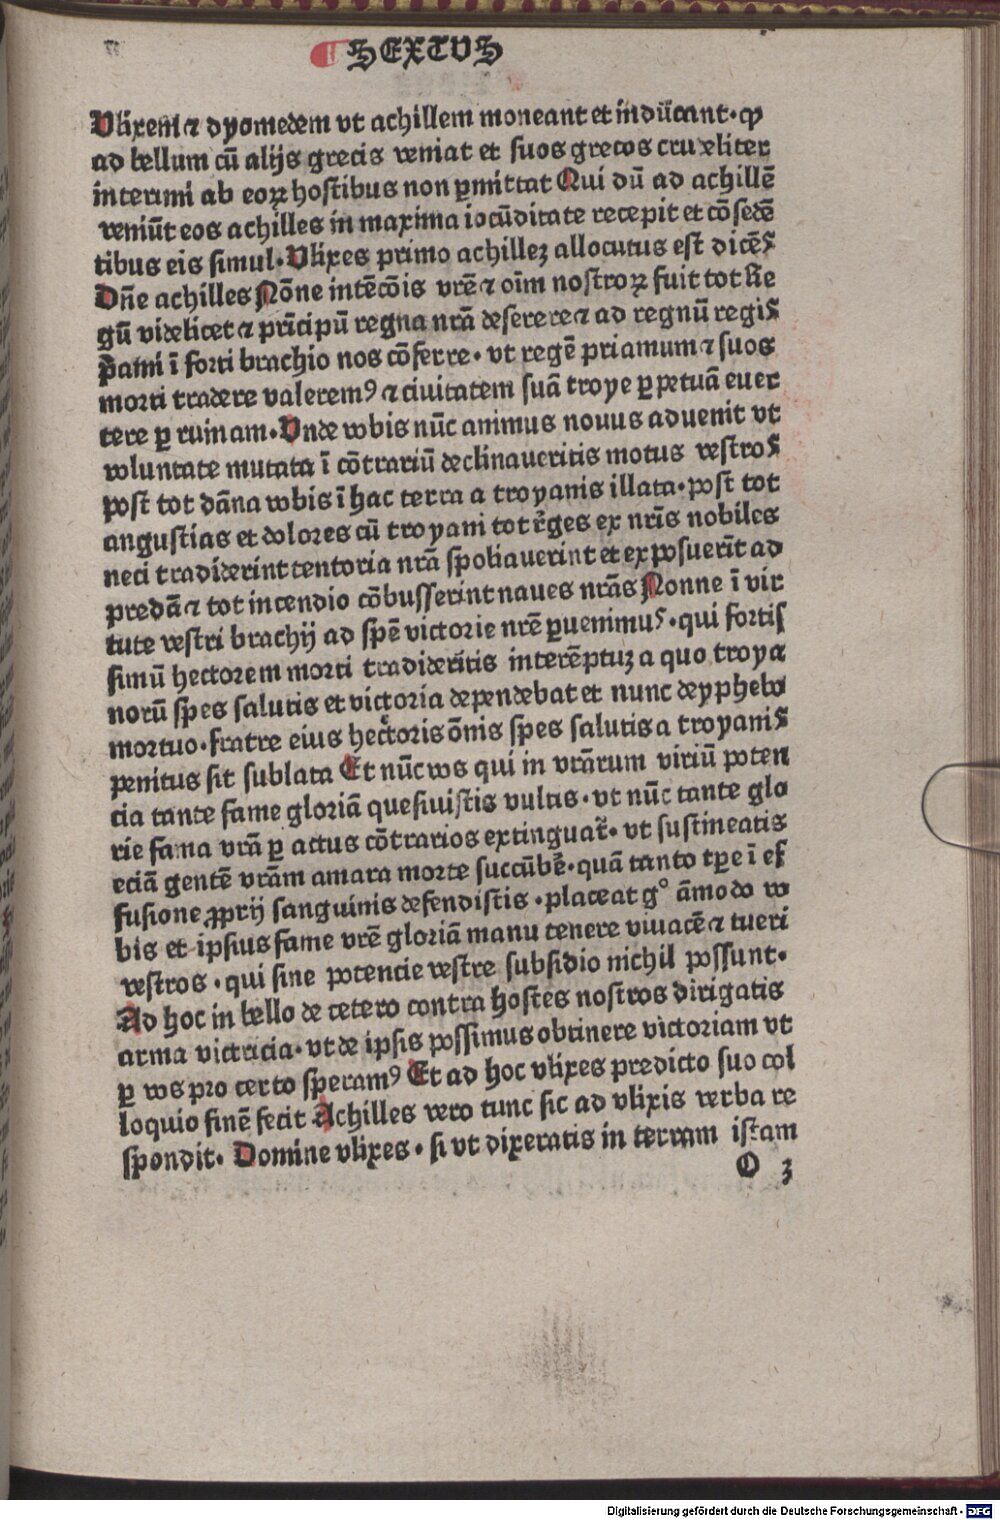 SEXTVS
Vlixem ⁊ dyomedem vt achillem moneant et inducant · ꝙ
ad bellum cū alijs grecis veniat et suos grecos crudeliter
interimi ab eoꝝ hostibus non ꝑmittat Qui dū ad achillē
veniūt eos achilles in maxima iocūditate recepit et cōsedē
tibus eis simul · Vlixes primo achillez allocutus est dicēs
Dn̄e achilles Nōne intēcōis vrē ⁊ oīm nostroꝝ fuit tot Re
gū videlicet ⁊ prīcipū regna nrā deserere ⁊ ad regnū regis
p̄ami ī forti brachio nos cōferre · vt regē priamum ⁊ suos
morti tradere valerem⁹ ⁊ ciuitatem suā troye ꝑpetuā euer
tere ꝑ ruinam · Vnde vobis nūc animus nouus aduenit vt
voluntate mutata ī cōtrariū declinaueritis motus vestros
post tot dāna vobis ī hac terra a troyanis illata · post tot
angustias et dolores cū troyani tot r̄ges ex nrīs nobiles
neci tradiderint tentoria nrā spoliauerint et exposuerīt ad
predā ⁊ tot incendio cōbusserint naues nrās Nonne ī vir
tute vestri brachij ad spē victorie nrē ꝑuenimus · qui fortis
simū hectorem morti tradideritis interēptuz a quo troya
norū spes salutis et victoria dependebat et nunc deyphebo
mortuo · fratre eius hectoris ōnis spes salutis a troyanis
penitus sit sublata Et nūc vos qui in vrārum viriū poten
cia tante fame gloriā quesiuistis vultis · vt nūc tante glo
rie fama vrā ꝑ actus cōtrarios extinguat̄ · vt sustineatis
eciā gentē vrām amara morte succūbe᷑ · quā tanto tꝑe ī ef
fusione ꝓprij sanguinis defendistis · placeat g° āmodo vo
bis et ipsius fame vrē gloriā manu tenere viuacē ⁊ tueri
vestros · qui sine potencie vestre subsidio nichil possunt ·
Ad hoc in bello de cetero contra hostes nostros dirigatis
arma victricia · vt de ipsis possimus obtinere victoriam vt
ꝑ vos pro certo speram⁹ Et ad hoc vlixes predicto suo col
loquio finē fecit Achilles vero tunc sic ad vlixis verba re
spondit · Domine vlixes · si vt dixeratis in terram istam
O 3
Digitalisierung gefördert durch die Deutsche Forschungsgemeinschaft - DFG